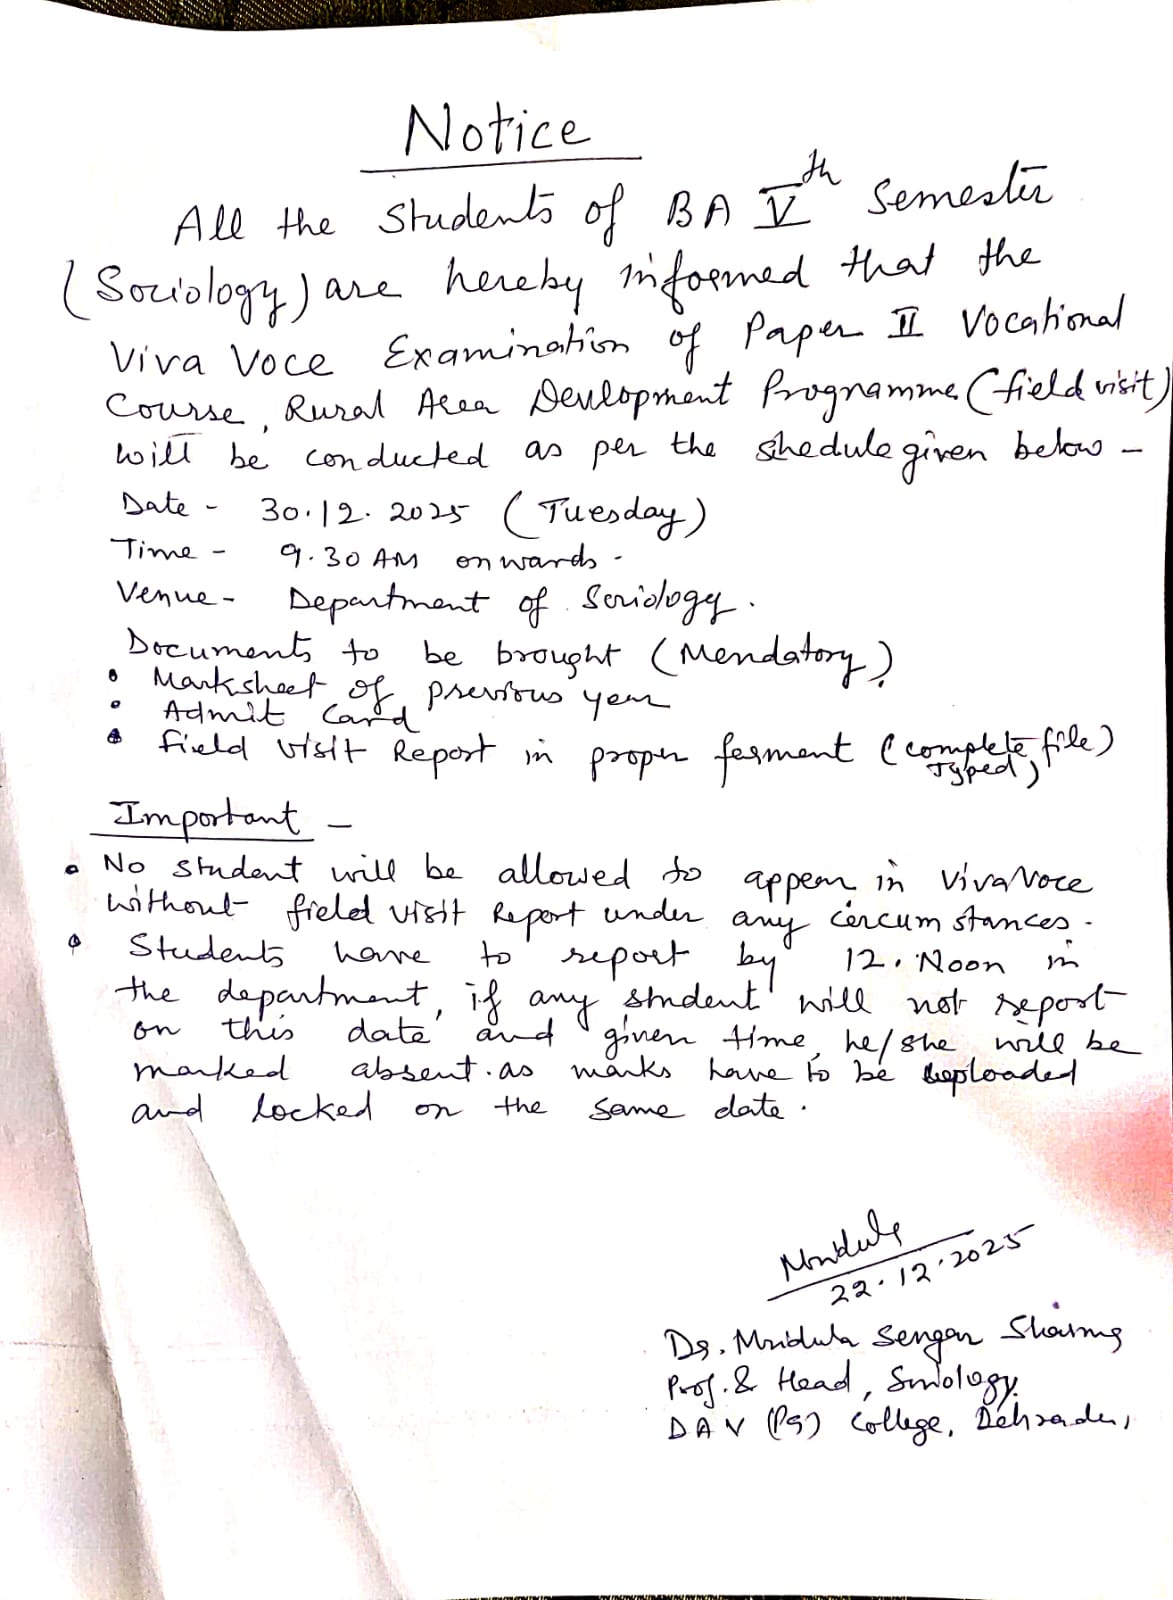 Notice
All the Students of BA Vth Semester
(Sociology) are hereby informed that the
Viva Voce Examination of Paper II Vocational
Course, Rural Area Devlopment Programme (field visit)
will be conducted as per the shedule given below -
Date - 30.12.2025 (Tuesday)
Time - 9.30 AM onwards -
Venue - Department of Sociology.
Documents to be brought (Mendatory)
• Marksheet of previous year
• Admit Card
• field visit Report in proper forment (complete file)
Typed,
Important -
• No student will be allowed to appear in Viva Voce
without field visit Report under any circumstances.
• Students have to report by 12. Noon in
the department, if any student will not report
on this date and given time, he/she will be
marked absent. as marks have to be uploaded
and locked on the same date.
Mridula
22.12.2025
Dr. Mridula Sengar Sharma
Prof. & Head, Sociology.
DAV (PG) College, Dehradun,